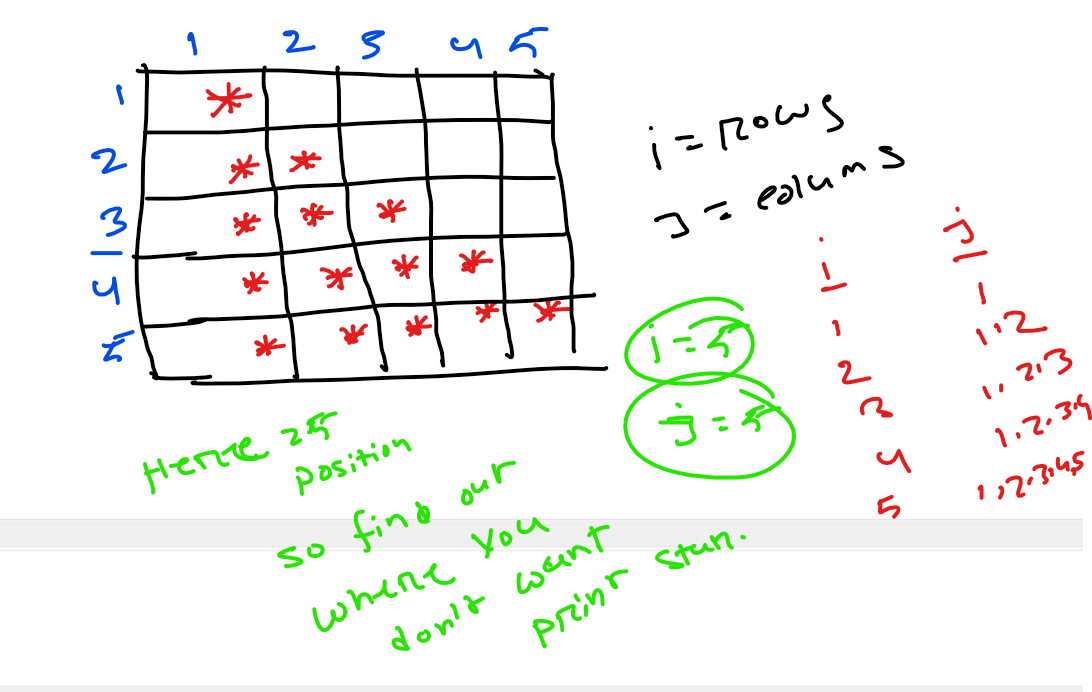 1 2 3 4 5
1 *
2 * *
3 * * *
4 * * * *
5 * * * * *
i = rows
j = colums
i j
1 1
2 1,2
3 1,2,3
4 1,2,3,4
5 1,2,3,4,5
i = 5
j = 5
Hence 25
position
so find out
where you
don't want
print star.